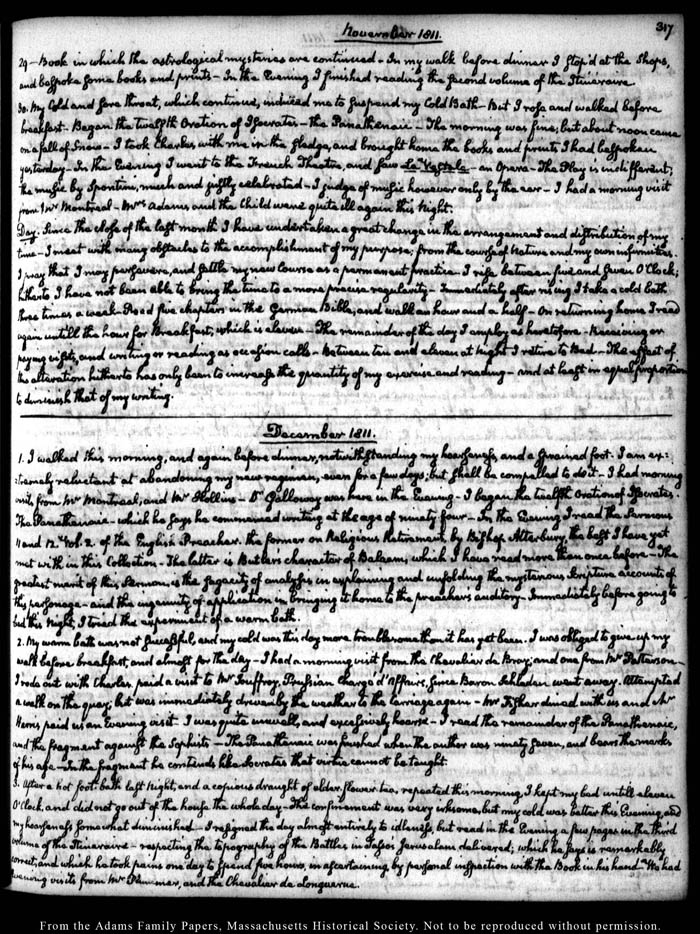 November 1811.
317
29 – Book in which the astrological mysteries are continued – In my walk before dinner I stop'd at the Shops,
and bespoke some books and prints – In the Evening I finished reading the second volume of the Itinéraire.
30. My Cold and sore throat, which continue, induced me to suspend my Cold Bath – But I rose and walked before
breakfast – Began the twelfth Oration of Isocrates – the Panathenaic – The morning was fine; but about noon came
on a fall of Snow – I took Charles with me in the sledge, and brought home the books and prints I had bespoken
yesterday – In the Evening I went to the French Theatre, and saw La Vestale – an Opera – The Play is indifferent;
the music by Spontini, much and justly celebrated – I judge of music however only by the ear – I had a morning visit
from Mr Montreal – Mrs Adams and the Child were quite ill again this Night.
Day. Since the close of the last month I have undertaken a great change in the arrangement and distribution of my
time – I meet with many obstacles to the accomplishment of my purpose; from the course of Nature and my own infirmities.
I pray that I may persevere, and settle my new Course as a permanent practice – I rise between five and seven O'Clock;
hitherto I have not been able to bring the time to a more precise regularity – Immediately after rising I take a cold bath
three times a week – Read five chapters in the German Bible, and walk an hour and a half – On returning home I read
again untill the hour for Breakfast, which is eleven – The remainder of the day I employ as heretofore – Receiving or
paying visits, and writing or reading as occasion calls – Between ten and eleven at Night I retire to Bed – The effect of
the alteration hitherto has only been to increase the quantity of my exercise and reading – and at least in equal proportion
to diminish that of my writing.
December 1811.
1. I walked this morning, and again before dinner, notwithstanding my hoarseness, and a strained foot. I am ex:
:tremely reluctant at abandoning my new regimen, even for a few days; but shall be compelled to do it – I had morning
visits from Mr Montreal, and Mr Hollins – Dr Galloway was here in the Evening – I began the twelfth Oration of Isocrates.
The Panathenaic – which he says he commenced writing at the age of ninety four – In the Evening I read the Sermons
11 and 12. Vol. 2. of the English Preacher. the former on Religious Retirement, by Bishop Atterbury, the best I have yet
met with in this Collection – The latter is Butler's character of Balaam, which I have read more than once before – The
greatest merit of this Sermon, is the sagacity of analysis in explaining and unfolding the mysterious Scripture accounts of
this personage – and the ingenuity of application in bringing it home to the preacher's auditory – Immediately before going to
bed this Night, I tried the experiment of a warm bath.
2. My warm bath was not successful, and my cold was this day more troublesome than it has yet been. I was obliged to give up my
walk before breakfast, and almost for the day – I had a morning visit from the Chevalier de Bray; and one from Mr Patterson –
I rode out with Charles paid a visit to Mr Jouffroy, Prussian chargé d'Affaires, since Baron Schladen went away. Attempted
a walk on the quay, but was immediately driven by the weather to the carriage again – Mr Fisher dined with us and Mr
Harris paid us an Evening visit – I was quite unwell, and excessively hoarse – I read the remainder of the Panathenaic,
and the fragment against the Sophists – The Panathenaic was finished when the author was ninety seven, and bears the marks
of his age – In the fragment he contends like Socrates that virtue cannot be taught.
3. After a hot foot-bath last Night, and a copious draught of elder-flower tea, repeated this morning, I kept my bed untill eleven
O'Clock, and did not go out of the house the whole day – The confinement was very irksome, but my cold was better this Evening, and
my hoarseness somewhat diminished – I resigned the day almost entirely to idleness, but read in the Evening a few pages in the third
volume of the Itinéraire – respecting the topography of the Battles in Tasso's Jerusalem delivered; which he says is remarkably
correct, and which he took pains one day to spend five hours, in ascertaining by personal inspection with the Book in his hand – We had
evening visits from Mr Plummer, and the Chevalier de Longuerue.
From the Adams Family Papers, Massachusetts Historical Society. Not to be reproduced without permission.